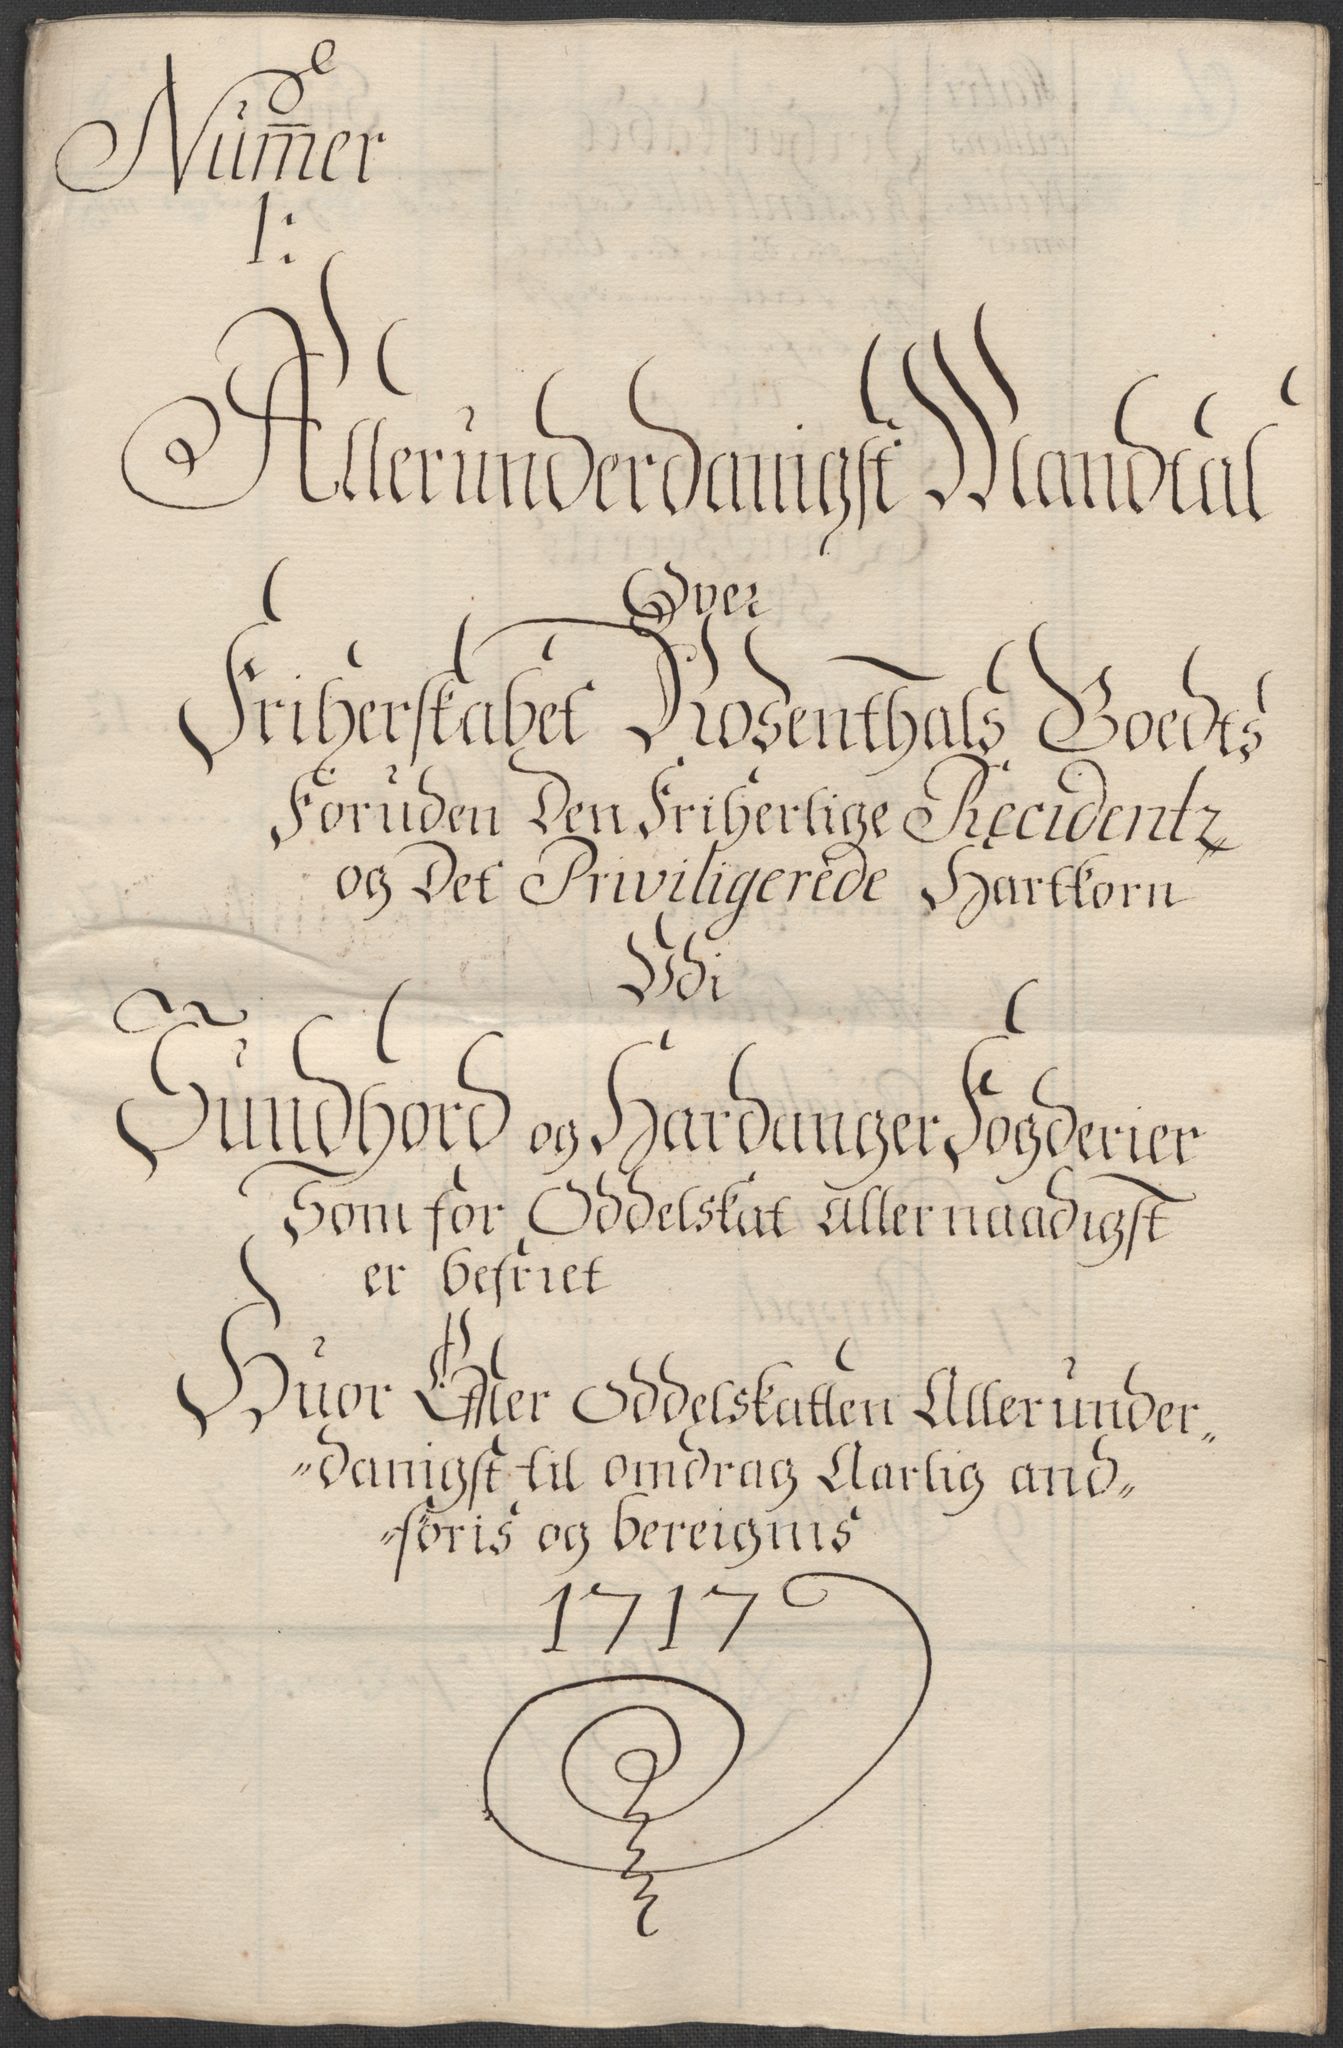 Numer
1:
Allerunderdanigst Mandtal
Over
Friherskabet Rosenthals Goedts
Foruden Den Friherlige Recidentz
og Det Priviligerede Hartkorn
Udi
Sundhord og Hardanger Fogderier
Som for Oddelskat Allernaadigst
er befriet
Huor Effter Oddelskatten Allerunder„
„danigst til omdrag Aarlig and„
„föris og bereignis
1717